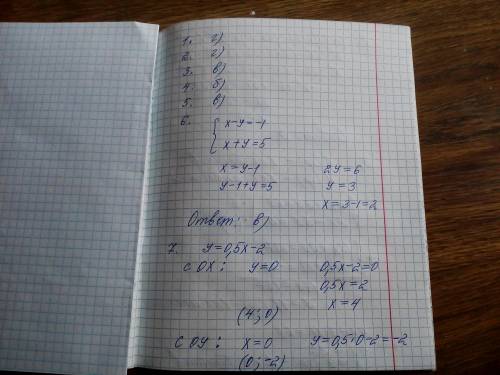 1. г)
2. г)
3. в)
4. б)
5. в)
6. { x-y=-1
x+y=5
x=y-1 2y=6
y-1+y=5 y=3
x=3-1=2
Ответ: в)
7. y=0,5x-2
с OX: y=0 0,5x-2=0
0,5x=2
x=4
(4;0)
с OY: x=0 y=0,5·0-2=-2
(0;-2)